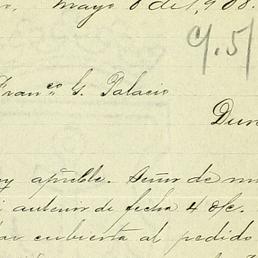 Mayo 8 de 1,908.
9.5/
Franco G. Palacio
Dur
y apreble. Señor de m
anterior de fecha 4 d/c.
cubierta al pedido